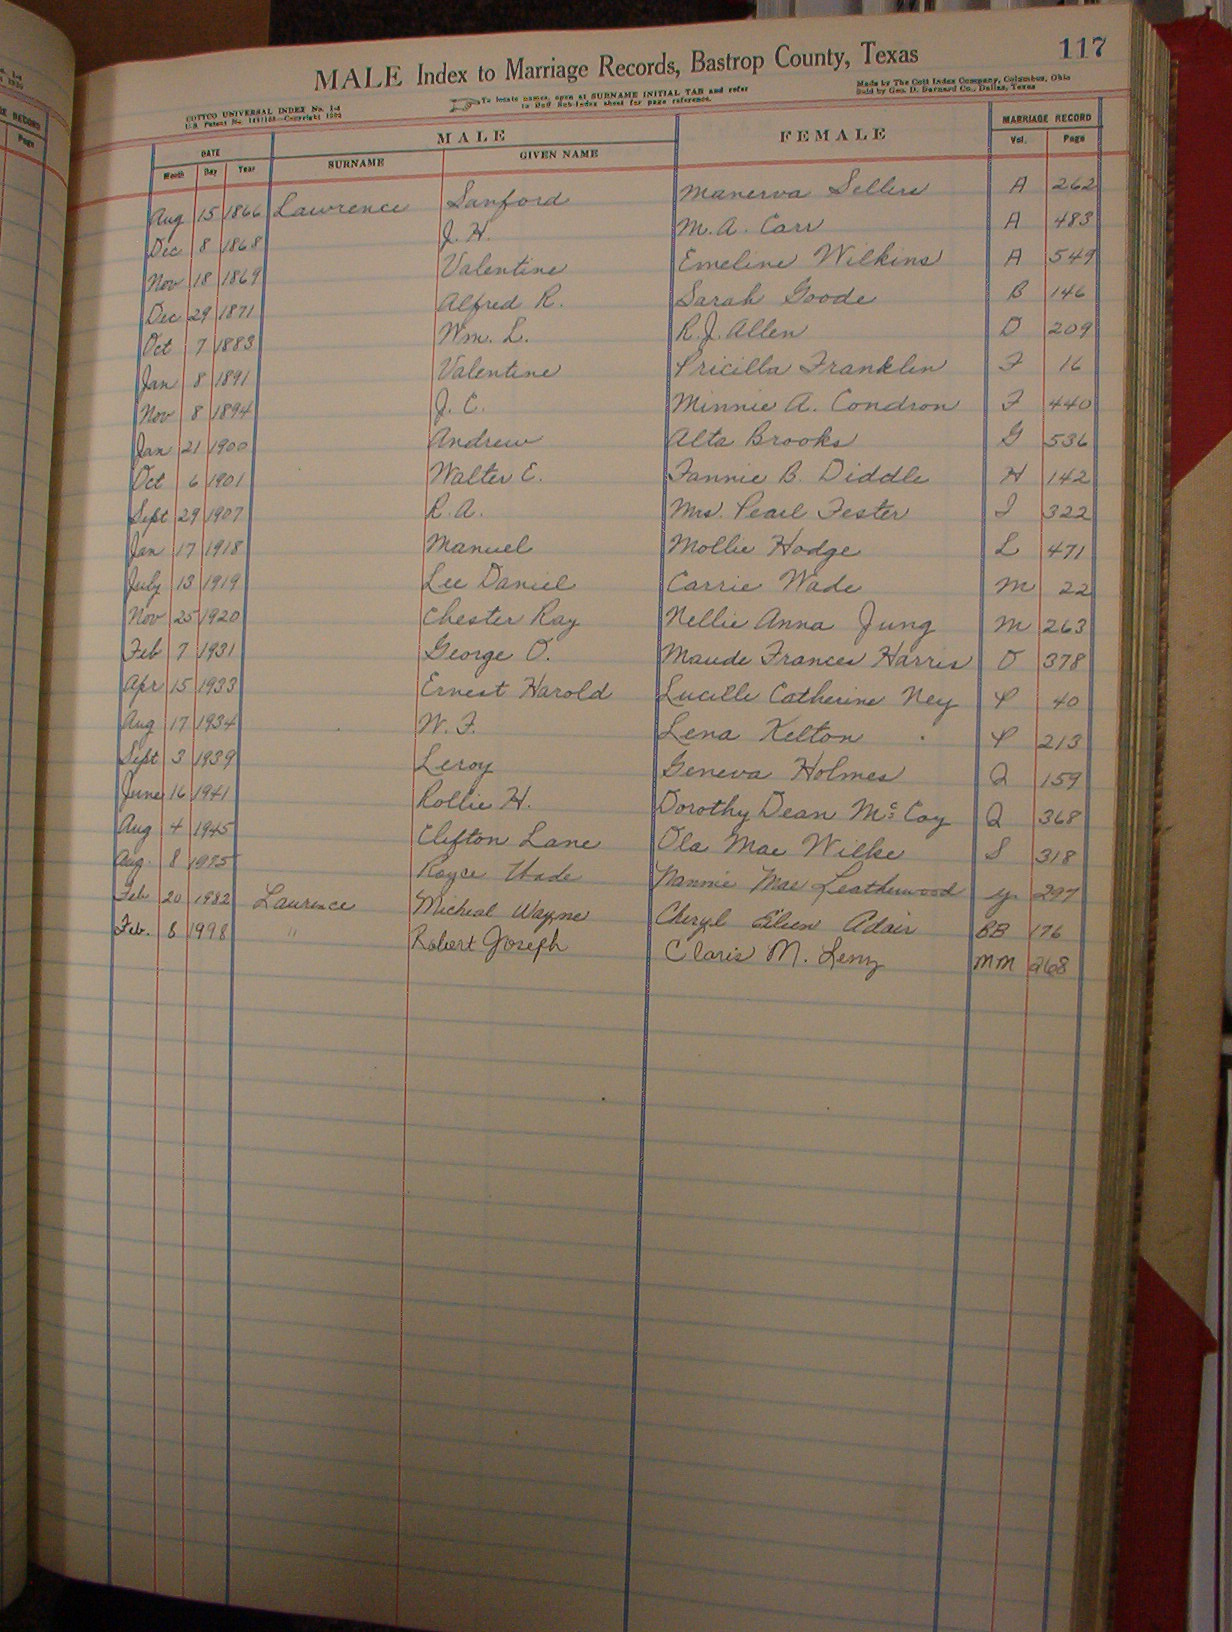 117
MALE Index to Marriage Records, Bastrop County, Texas
COTTCO UNIVERSAL INDEX No. 1-4
To locate names, open at SURNAME INITIAL TAB and refer
Made by The Cott Index Company, Columbus, Ohio
Sold by Geo. D. Barnard Co., Dallas, Texas
MALE FEMALE MARRIAGE RECORD
DATE SURNAME GIVEN NAME Vol. Page
Month Day Year
Aug 15 1866 Lawrence Sanford Manerva Sellers A 262
Dec 8 1868 J. H. M. A. Carr A 483
Nov 18 1869 Valentine Emeline Wilkins A 549
Dec 29 1871 Alfred R. Sarah Goode B 146
Oct 7 1883 Wm. L. R. J. Allen D 209
Jan 8 1891 Valentine Pricilla Franklin F 16
Nov 8 1894 J. C. Minnie A. Condron F 440
Jan 21 1900 Andrew Alta Brooks G 536
Oct 6 1901 Walter E. Fannie B. Diddle H 142
Sept 29 1907 R. A. Mrs. Pearl Fester I 322
Jan 17 1918 Manuel Mollie Hodge L 471
July 13 1919 Lee Daniel Carrie Wade M 22
Nov 25 1920 Chester Ray Nellie Anna Jung M 263
Feb 7 1931 George O. Maude Frances Harris O 378
Apr 15 1933 Ernest Harold Lucille Catherine Ney P 40
Aug 17 1934 W. F. Lena Kelton P 213
Sept 3 1939 Leroy Geneva Holmes Q 159
June 16 1941 Rollie H. Dorothy Dean McCoy Q 368
Aug 4 1945 Clifton Lane Ola Mae Wilke S 318
Aug. 8 1975 Royce Wade Nannie Mae Leatherwood y 297
Feb 20 1982 Lawrence Micheal Wayne Cheryl Eileen Adair BB 176
Feb. 8 1998 " Robert Joseph Claris M. Lenz MM 268